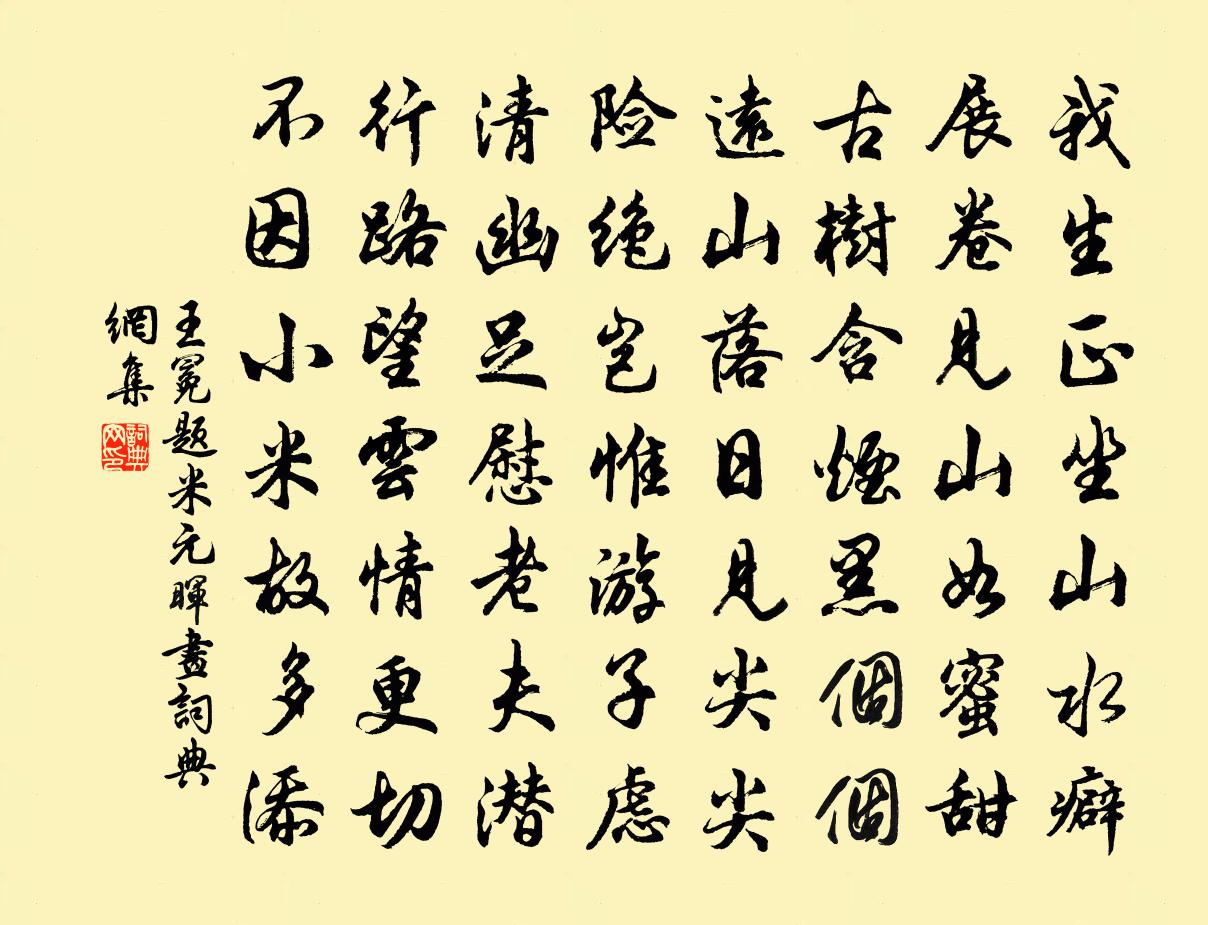 我生正坐山水癖
展卷見山如蜜甜
古樹含煙黑個個
遠山落日見尖尖
险绝岂惟游子慮
清幽足慰老夫潜
行路望雲情更切
不因小米故多添
王冕题米元暉畫詞典
網集
詞典
网印